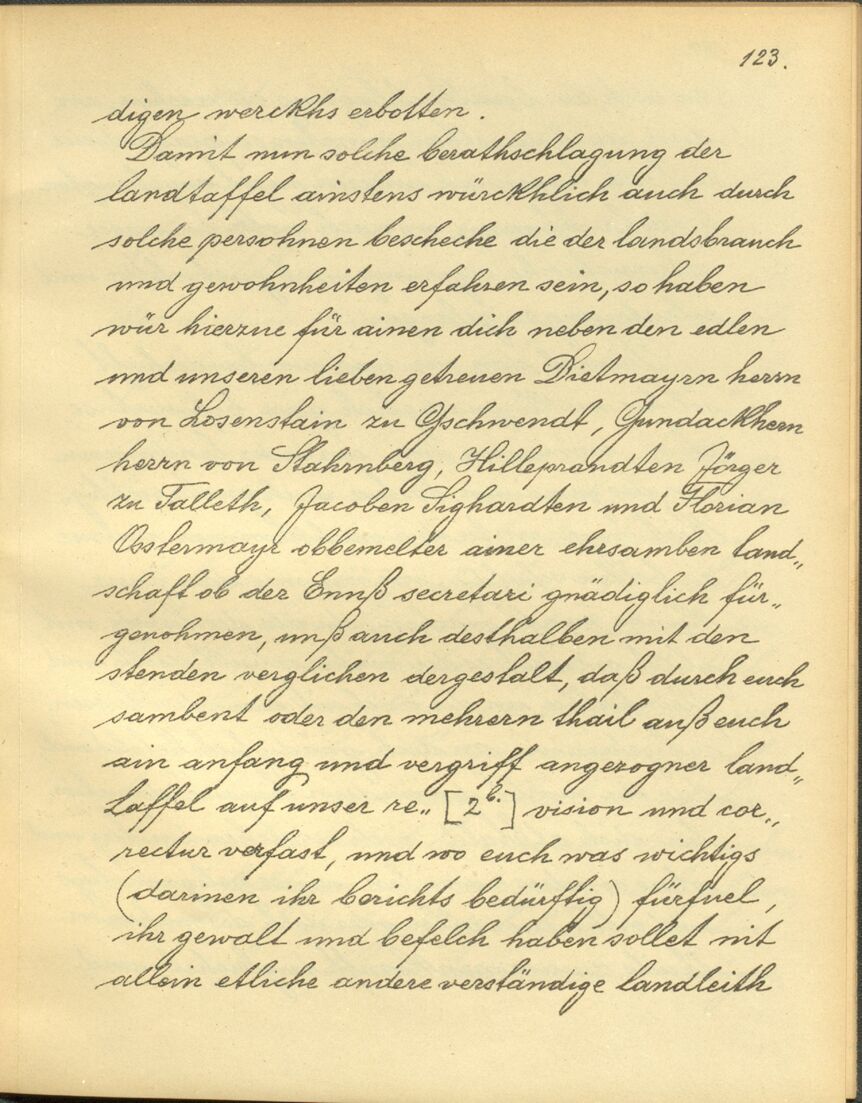 123.
digen werckhs erbotten.
Damit nun solche berathschlagung der
landtaffel ainstens würckhlich auch durch
solche persohnen bescheche die der landsbrauch
und gewohnheiten erfahren sein, so haben
wür hierzue für ainen dich neben den edlen
und unseren lieben getreuen Dietmayrn herrn
von Losenstain zu Gschwendt, Gundackhern
herrn von Stahrnberg, Hilleprandten Jörger
zu Talleth, Jacoben Sighardten und Florian
Ostermayr obbemelter ainer ehrsamben land„
schaft ob der Ennß secretari gnädiglich für„
genohmen, unß auch desthalben mit den
stenden verglichen dergestalt, daß durch euch
sambent oder den mehrern thail auß euch
ain anfang und vergriff angezogner land„
taffel auf unser re„ [2b.] vision und cor„
rectur verfast, und wo euch was wichtigs
(darinen ihr berichts bedürftig) fürfuel,
ihr gewalt und befelch haben sollet nit
allein etliche andere verständige landleith